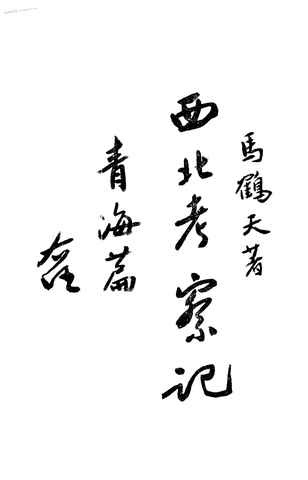 馬鶴天著
西北考察記
青海篇
右任